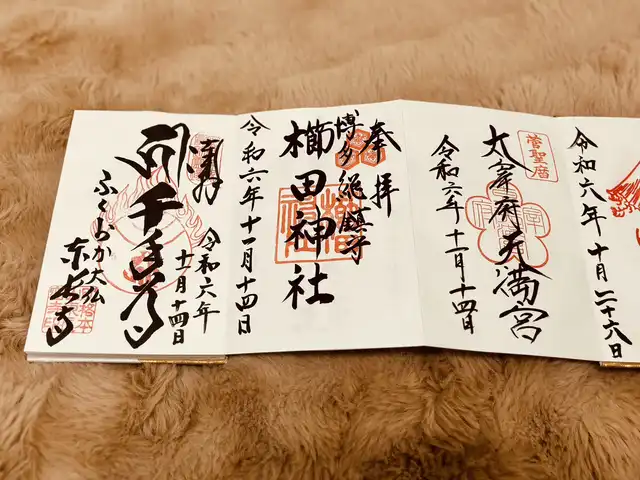 令和六年十月二十六日
菅聖暦
太宰府天満宮
令和六年十一月十四日
奉拝
博多総鎮守
櫛田神社
令和六年十一月十四日
奉拝
令和六年
十一月十四日
千手尊
ふくおか大仏
東長寺